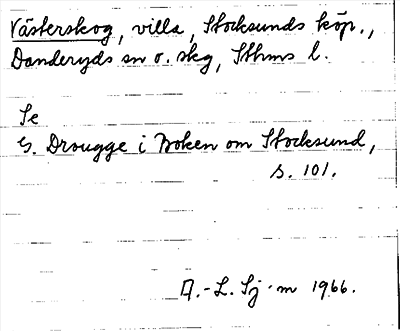 Västerskog, villa, Stocksunds köp.,
Danderyds sn o. skg, Sthms l.
Se
G. Drougge i Boken om Stocksund,
s. 101.
A.-L. Sj-m 1966.